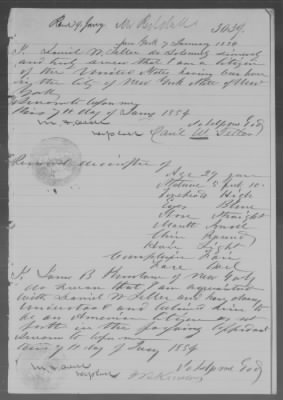 3439.
New York 7 January 1854
I Daniel W. Teller do solemnly sincerely
and truly swear that I am a citizen
of the United States having been born
in the City of New York State of New
York
Sworn to before me
this 7th day of Jany 1854
So help me God
Danl W. Teller
Personal description of
Age 29 years
Stature 5 feet 10
Forehead High
Eyes Blue
Nose Straight
Mouth Small
Chin Round
Hair Light
Complexion Fair
Face Oval
I James B of New York
do swear that I am acquainted
with Daniel W. Teller and have always
understood and believed him to
be an American Citizen as set
forth in the foregoing affidavit
Sworn to before me
this 7th day of Jany 1854
So help me God